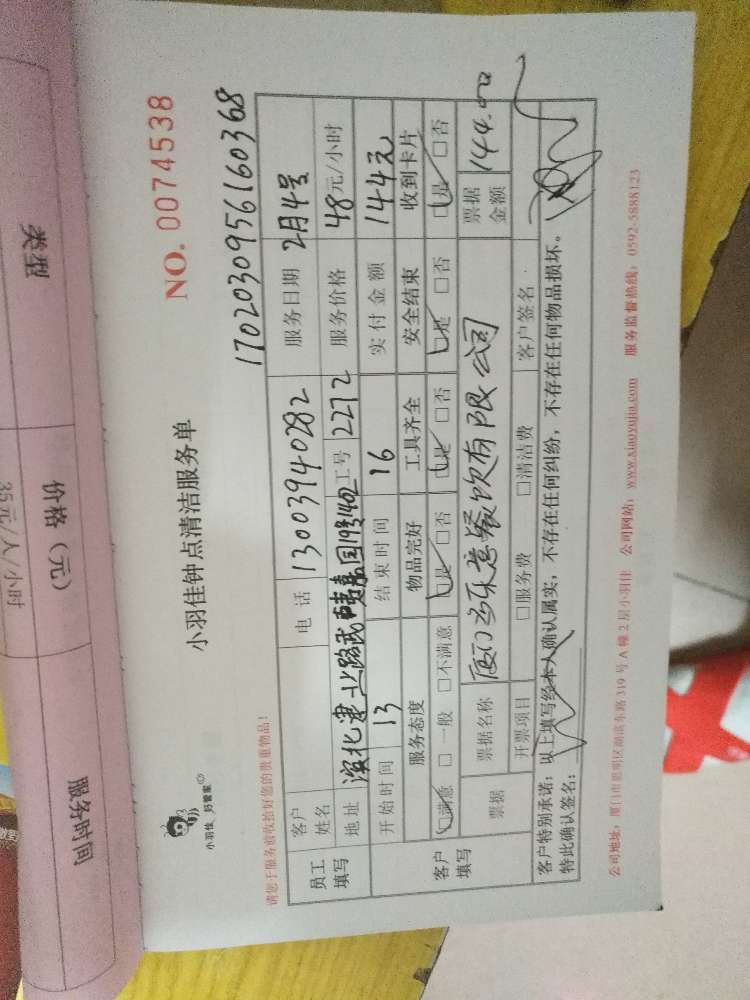 类型
价格（元）
服务时间
35元/人/小时
小羽佳 好管家
小羽佳钟点清洁服务单
NO. 0074538
请您于服务前收拾好您的贵重物品！
1702030956160368
员工填写
客户姓名
电话 13003940282
服务日期 2月4号
地址
工号 2272
服务价格 48元/小时
开始时间 13
结束时间 16
实付金额 144元
客户填写
服务态度 物品完好 工具齐全 安全结束 收到卡片
☑满意 □一般 □不满意 ☑是 □否 ☑是 □否 ☑是 □否 ☑是 □否
票据 票据名称 厦门多乐意餐饮有限公司 票据金额 144.00
开票项目 □服务费 □清洁费 客户签名
客户特别承诺：以上填写经本人确认属实，不存在任何纠纷，不存在任何物品损坏。
特此确认签名：
公司地址：厦门市思明区湖滨东路319号A幢2层小羽佳 公司网站：www.xiaoyujia.com 服务监督热线：0592-5888123